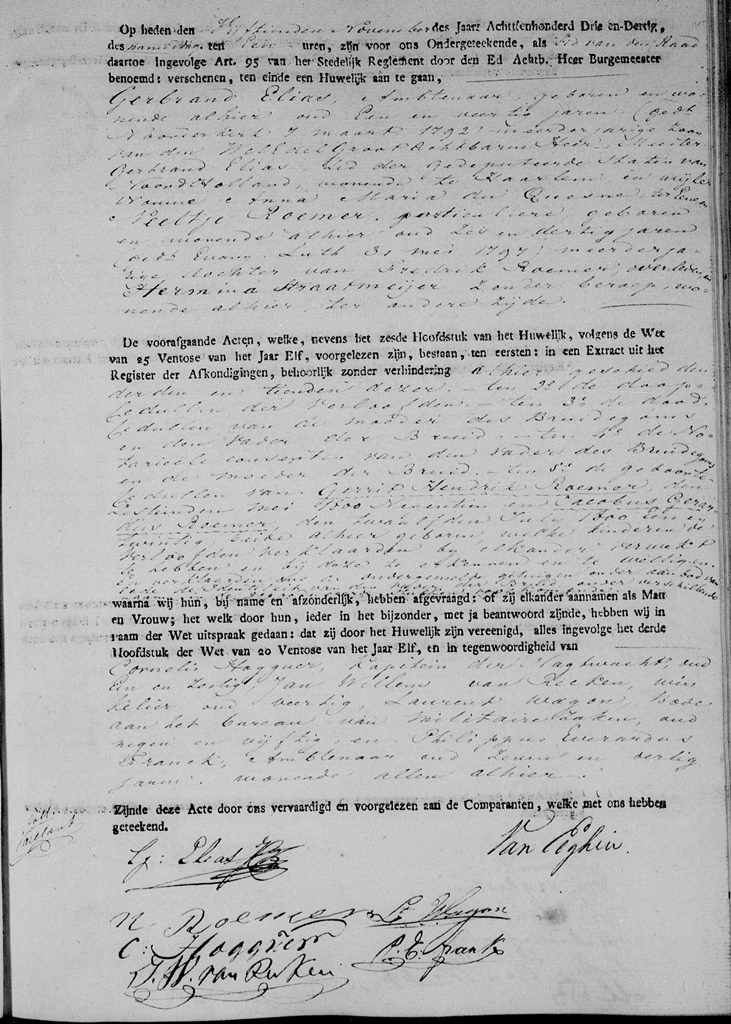 Op heden den Vijftienden November des Jaars Achttienhonderd Drie en-Dertig,
des ten uren, zijn voor ons Ondergeteekende, als Lid van den Raad
daartoe ingevolge Art. 95 van het Stedelijk Reglement door den Ed Achtb. Heer Burgemeester
benoemd: verschenen, ten einde een Huwelijk aan te gaan,
Gerbrand Elias, Ambtenaar, geboren en wo-
nende alhier oud Een en veertig jaren (gedt
Noorderkerk 7 maart 1792) meerderjarige Zoon
van den WelEdelGrootAchtbaren Heer Meester
Gerbrand Elias Lid der Gedeputeerde Staten van
Noord Holland, wonende te Haarlem en wijlen
Vrouwe Anna Maria du Quesne, ter Eenre
Neeltje Roemer, particuliere geboren
en wonende alhier oud Zes en dertig jaren
gedt Evang. Luth 31 mei 1797) meerderja-
rige dochter van Fredrik Roemer, overleden en
Hermina Straatmeijer Zonder beroep, wo-
nende alhier, ter andere Zijde.
De voorafgaande Acten, welke, nevens het zesde Hoofdstuk van het Huwelijk, volgens de Wet
van 25 Ventose van het Jaar Elf, voorgelezen zijn, bestaan, ten eersten: in een Extract uit het
Register der Afkondigingen, behoorlijk zonder verhindering alhier geschied den
derden en tienden dezer - ten 2e de doop-
cedullen der Verloofden - ten 3e de dood-
cedullen van de moeder des Bruidegoms
en den vader der Bruid - ten 4e de No-
tarieele consenten van den vader des Bruidegoms
en de moeder der Bruid - ten 5e de geboorte
cedullen van Gerrit Hendrik Roemer, den
mei 1800 Neventien en Jacobus Gerar-
dus Roemer, den twaalfden July 1800 Een en
twintig beide alhier geboren, welke kinderen de
Verloofden verklaarden bij elkander verwekt
te hebben en bij deze te erkennen en te wettigen
en verklaarden ons de ondergemelde getuigen onder aanbod van
waarna wij hun, bij name en afzonderlijk, hebben afgevraagd: of zij elkander aannamen als Man
en Vrouw; het welk door hun, ieder in het bijzonder, met ja beantwoord zijnde, hebben wij in
naam der Wet uitspraak gedaan: dat zij door het Huwelijk zijn vereenigd, alles ingevolge het derde
Hoofdstuk der Wet van 20 Ventose van het Jaar Elf, en in tegenwoordigheid van
Cornelis Hogguer, Kapitein der Nagtwacht, oud
een en Zestig, Jan Willem van Reeken, win-
kelier oud veertig, Laurent Wagon Bode
aan het bureau van Militaire Zaken, oud
negen en vijftig, en Philippus Everardus
Franck, Ambtenaar oud Zeven en dertig
jaren: wonende allen alhier.
Zijnde deze Acte door ons vervaardigd en voorgelezen aan de Comparanten, welke met ons hebben
geteekend.
G: Elias
Van Eeghen.
N. Roemer
L. Wagon
C: Hogguer
P. E. Franck
J. W. van Reeken